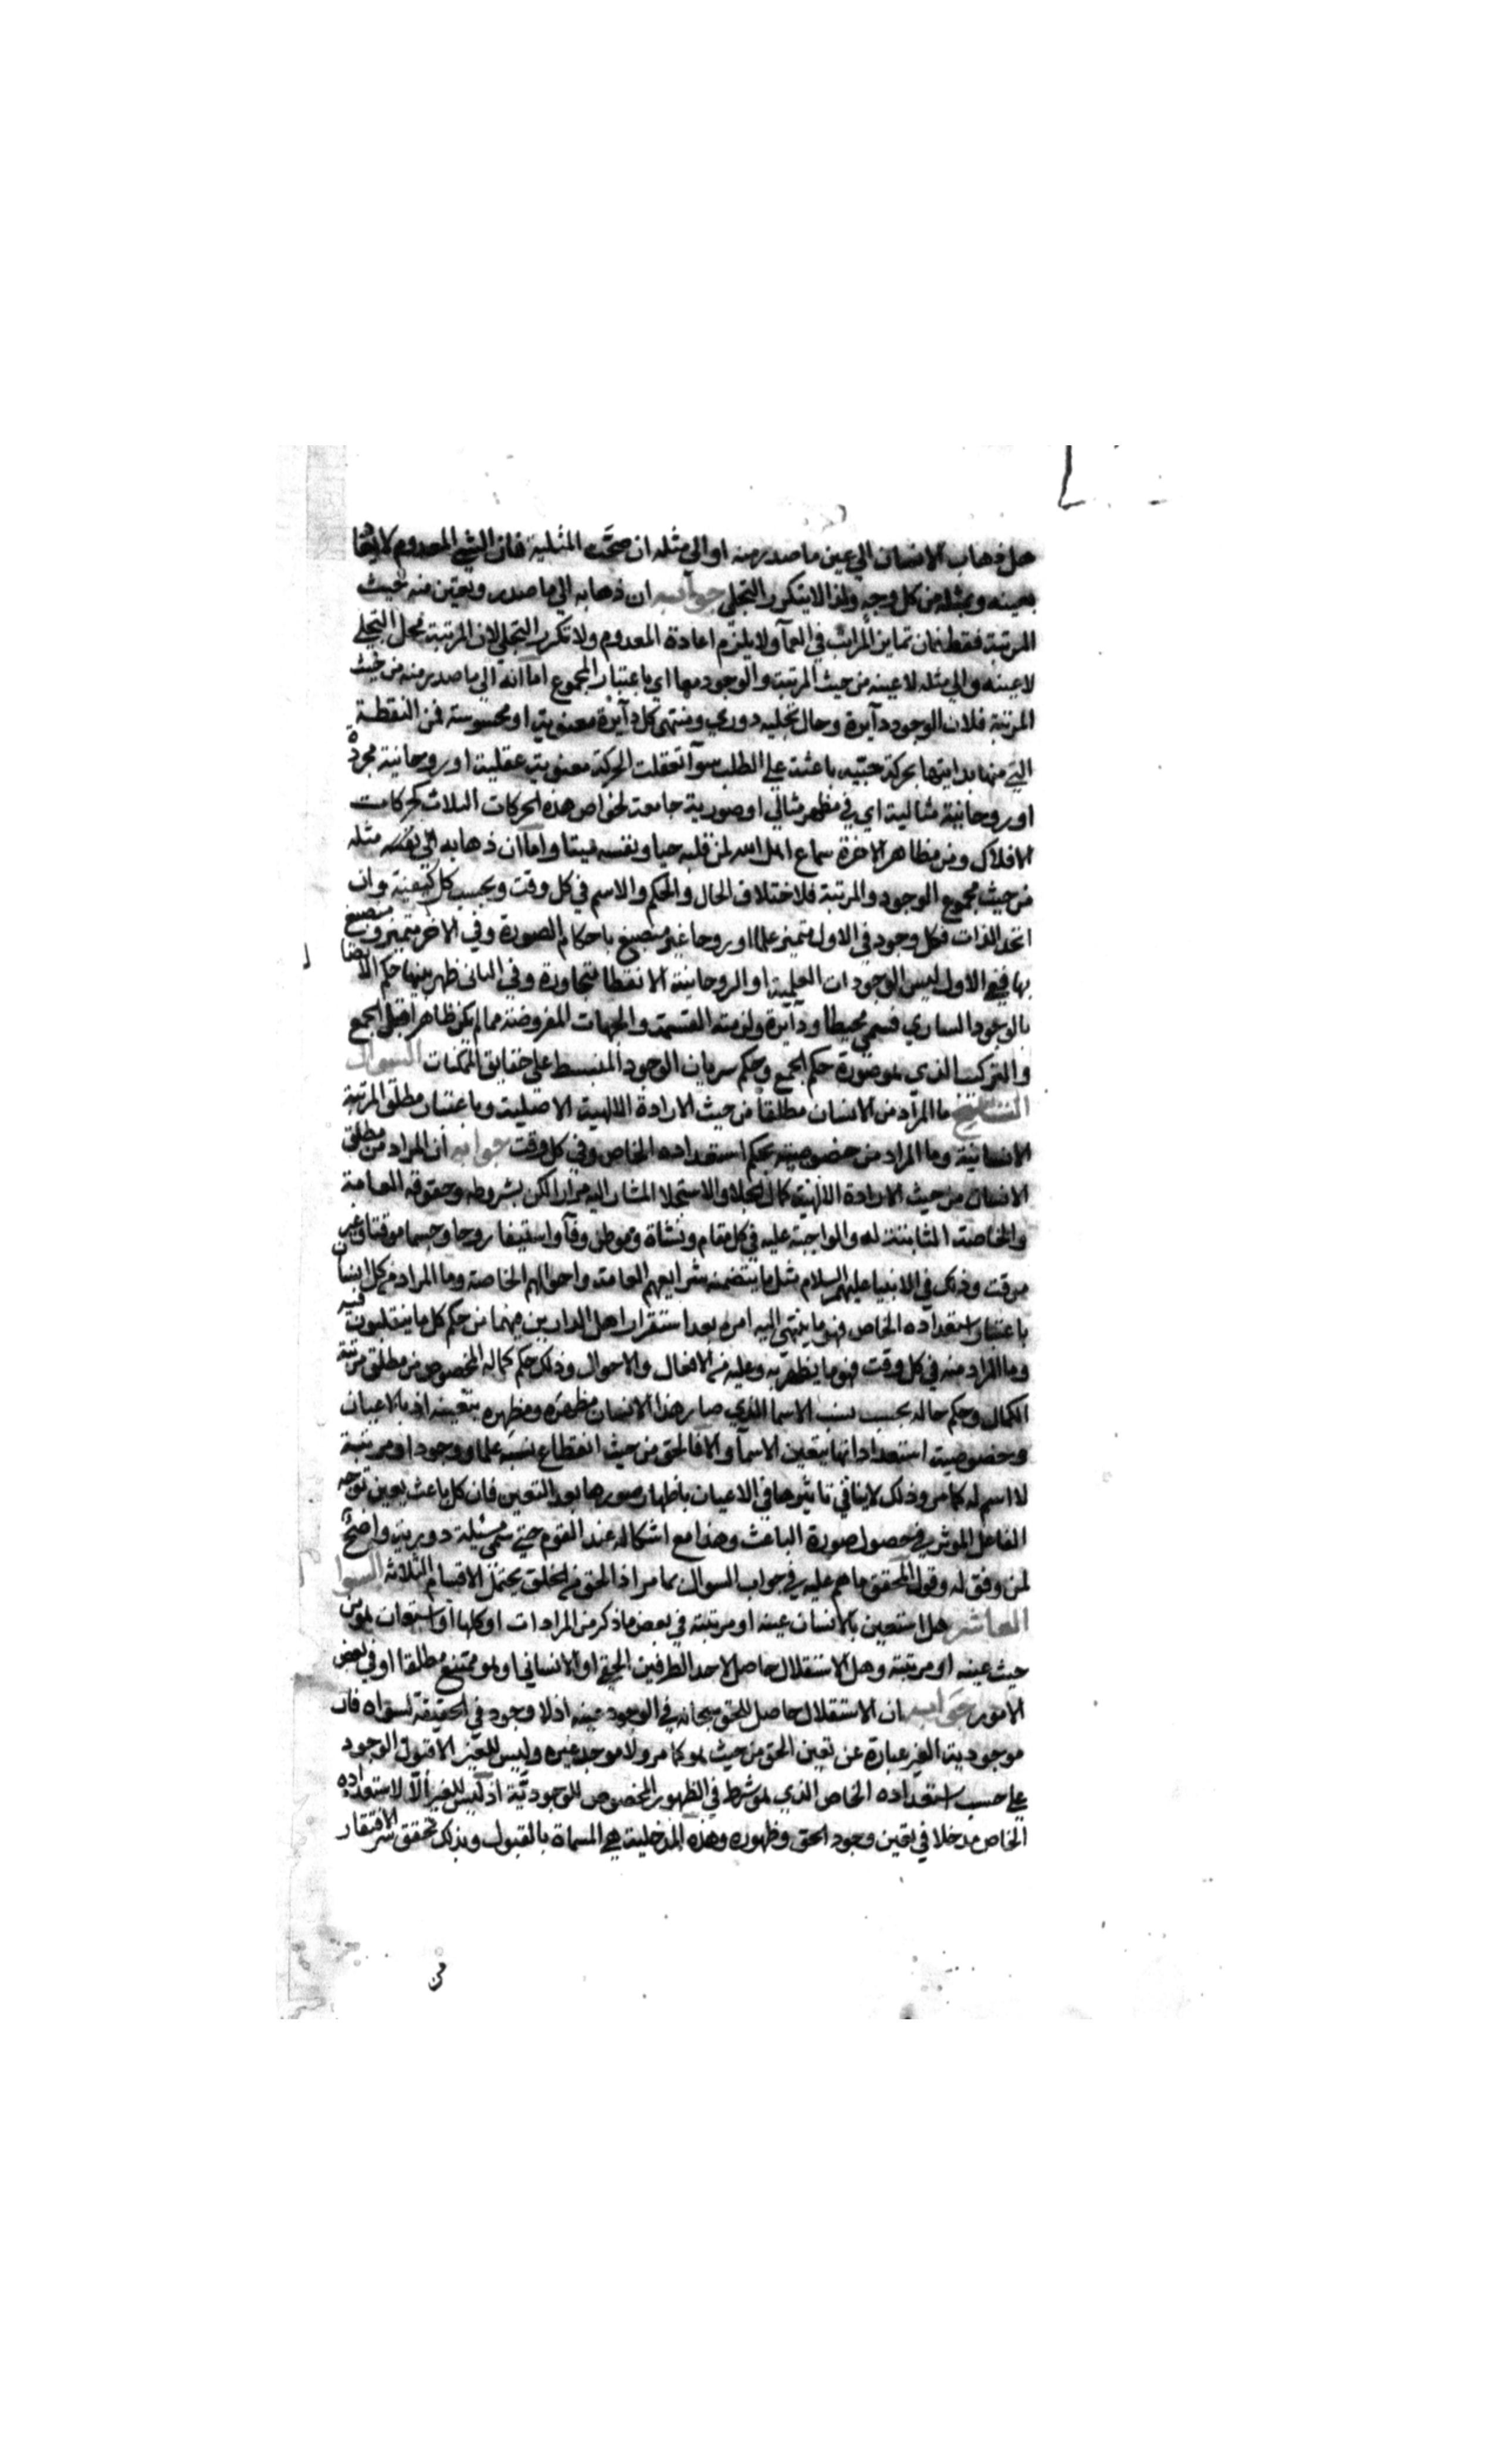 هل ذهاب الانسان الي عين ما صدر منه او الي مثله ان صحّت المثلية فان الشئ المعدوم لا يعاد
بعينه وبمثله من كل وجه ولذا لا يتكرر التجلي جوابه ان ذهابه الي ما صدر وتعين منه بحيث
المرتبة فقط فان تمايز المراتب في العمآ ولا يلزم اعادة المعدوم ولا تكرر التجلي لان المرتبة محل التجلي
لا عينه والي مثله لا عينه من حيث المرتبة والوجود معا اي باعتبار المجموع اما انه الي ما صدر منه من حيث
المرتبة فلان الوجود دآيرة وحال تجليه دوري ومنتهي كل دآيرة معنوية او محسوسة لمن النقطة
التي منها بدايتها بحركة حبّيه باعثة علي الطلب سوآ تعقلت الحركة معنوية عقلية او روحانية مجردة
او روحانية مثالية اي في مظهر مثالي او صورية جامعة لخواص هذه الحركات الثلاث كحركات
الافلاك ومن مظاهر الاخرة سماع اهل الله لمن قلبه حيا ونفسه ميتا واما ان ذهابه الي مثله
من حيث مجموع الوجود والمرتبة فلاختلاف الحال والحكم والاسم في كل وقت وبحسب كل كيفية وان
اتحد الذات فكل وجود في الاول متميز علما او روحا غير منصبغ باحكام الصورة وفي الاخر متميز ومنصبغ
بها ففي الاول ليس الوجودات العلمية او الروحانية الا نقطا متجاورة وفي الثاني ظهر بينها حكم الاتصال
بالوجود الساري فسمي محيطا ودآيرة ولزمته القسمة والجهات المفروضة مما لم يكن ظاهرا قبل الجمع
والتركيب الذي هو صورة حكم الجمع وحكم سريان الوجود المنبسط علي حقايق الممكنات السؤال
التاسع ما المراد من الانسان مطلقا من حيث الارادة الالهية الاصلية وباعتبار مطلق المرتبة
الانسانية وما المراد من خصوصيته بحكم استعداده الخاص وفي كل وقت جوابه ان المراد من مطلق
الانسان من حيث الارادة الالهية كمال الجلا والاستجلا المشار اليه مرارا لكن بشروطه وحقوقه العامة
والخاصة الثابتة له والواجبة عليه في كل مقام ونشأة وموطن وفآ واستيفا روحا وجسما موقتا وغير
موقت وذلك في الانبيا عليهم السلام مثل ما يتضمنه شرايعهم العامة واحوالهم الخاصة وما المراد من كل انسان
باعتبار استعداده الخاص فهو ما ينتهي اليه امره بعد استقرار اهل الدارين فيهما من حكم كل ما ينقلبون فيه
وما المراد منه في كل وقت فهو ما يظهر به وعليه من الافعال والاحوال وذلك حكم كماله المخصوص من مطلق مرتبة
الكمال وحكم حاله بحسب نسب الاسما الذي صار هذا الانسان مظهره ومظهره بتعينه اذ بالاعيان
وخصوصية استعداداتها يتعين الاسمآ والا فالحق من حيث انقطاع نسبه علما ووجودا ومرتبة
لا اسم له كما مر وذلك لا ينافي تاثيرها في الاعيان باظهار صورها بعد التعين فان كل باعث يعين توجه
الفاعل الموثر في حصول صورة الباعث وهذا مع اشكاله عند القوم حتي سمي مسئلة دورية واضح
لمن وفق له وقول المحقق ما هم عليه في جواب السوال بما مراد الحق من الخلق يحتمل الاقسام الثلاثة السوال
العاشر هل استعين بالانسان عينه او مرتبته في بعض ما ذكر من المرادات او كلها او استعان هو من
حيث عينه او مرتبته وهل الاستقلال حاصل لاحد الطرفين الحقي او الانساني او هو ممتنع مطلقا او في بعض
الامور جوابه ان الاستقلال حاصل للحق سبحانه في الوجود عينه اذ لا وجود في الحقيقة لسواه فان
موجودية الغير عبارة عن تعين الحق من حيث هو كما مر ولا موجد غيره وليس للغير الا قبول الوجود
علي حسب استعداده الخاص الذي هو شرط في الظهور المخصوص للوجوديّة اذ ليس للغير الّا لاستعداده
الخاص مدخلا في تعين وجود الحق وظهوره وهذه المدخلية هي المسماة بالقبول وبذلك تحقق سر الافتقار
من